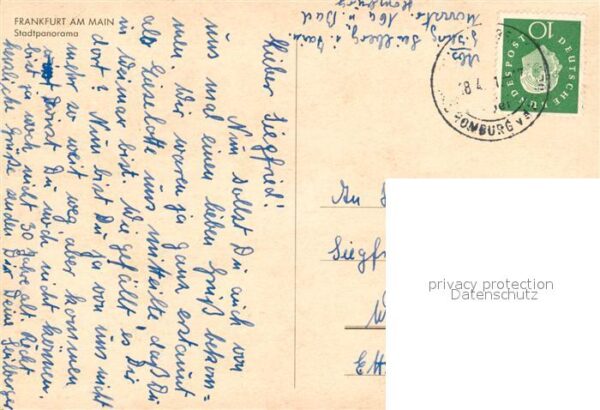 FRANKFURT AM MAIN
Stadtpanorama
Lieber Siegfried!
Nun sollst Du auch von
uns mal einen lieben Gruß bekom=
men. Wir waren ja ganz erstaunt
als Liselotte uns mitteilte, daß Du
in Weimar bist. Wie gefällt es Dir
dort? Nun bist Du ja von uns nicht
mehr so weit weg, aber kommen
wirst Du noch nicht können.
bist ja noch nicht 30 Jahre alt. Recht
herzliche Grüße senden Dir Deine
i. Taun.
16a v. Bad
Homburg
10
DEUTSCHE BUNDESPOST
18.4.
HOMBURG v
An
Siegfr
W
privacy protection
Datenschutz